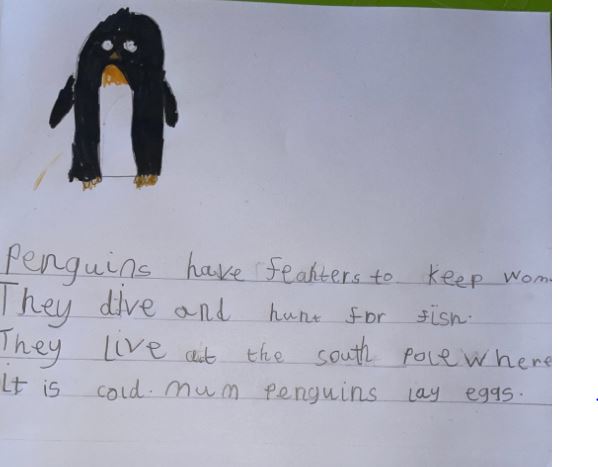 Penguins have feahters to keep wom
They dive and hunt for fish.
They Live at the south pole where
it is cold. mum penguins lay eggs.